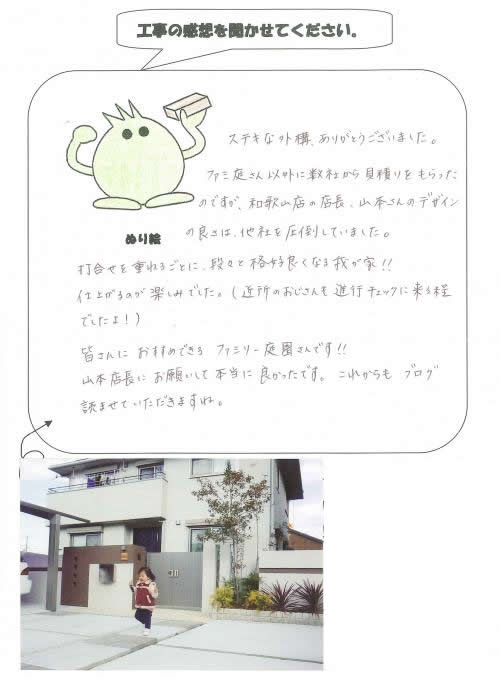 工事の感想を聞かせてください。
ステキな外構、ありがとうございました。
ファミ庭さん以外に数社から見積りをもらった
のですが、和歌山店の店長、山本さんのデザイン
の良さは、他社を圧倒していました。
ぬり絵
打合せを重ねるごとに、段々と格好良くなる我が家!!
仕上がるのが楽しみでした。(近所のおじさんも進行チェックに来る程
でしたよ!)
皆さんにおすすめできるファミリー庭園さんです!!
山本店長にお願いして本当に良かったです。これからもブログ
読ませていただきますね。